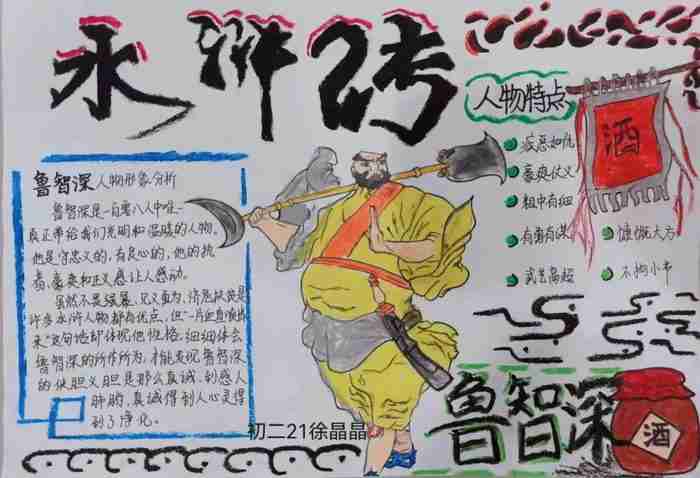 水浒传
人物特点
酒
疾恶如仇
豪爽仗义
粗中有细
有勇有谋
慷慨大方
武艺高超
不拘小节
鲁智深人物形象分析
鲁智深是一百零八人中唯一
真正带给我们光明和温暖的人物。
他是守忠义的,有良心的,他的执
着,豪爽和正义感让人感动。
虽然不畏强暴、见义勇为、济危扶贫是
许多水浒人物都有优点,但"一片血直喷出
来"这句话却体现他性格,细细体会
鲁智深的所作所为,才能发现鲁智深
的侠胆义胆是那么真诚,到感人
肺腑,真诚得到人心灵得
到了净化。
鲁智深
酒
初二21徐晶晶